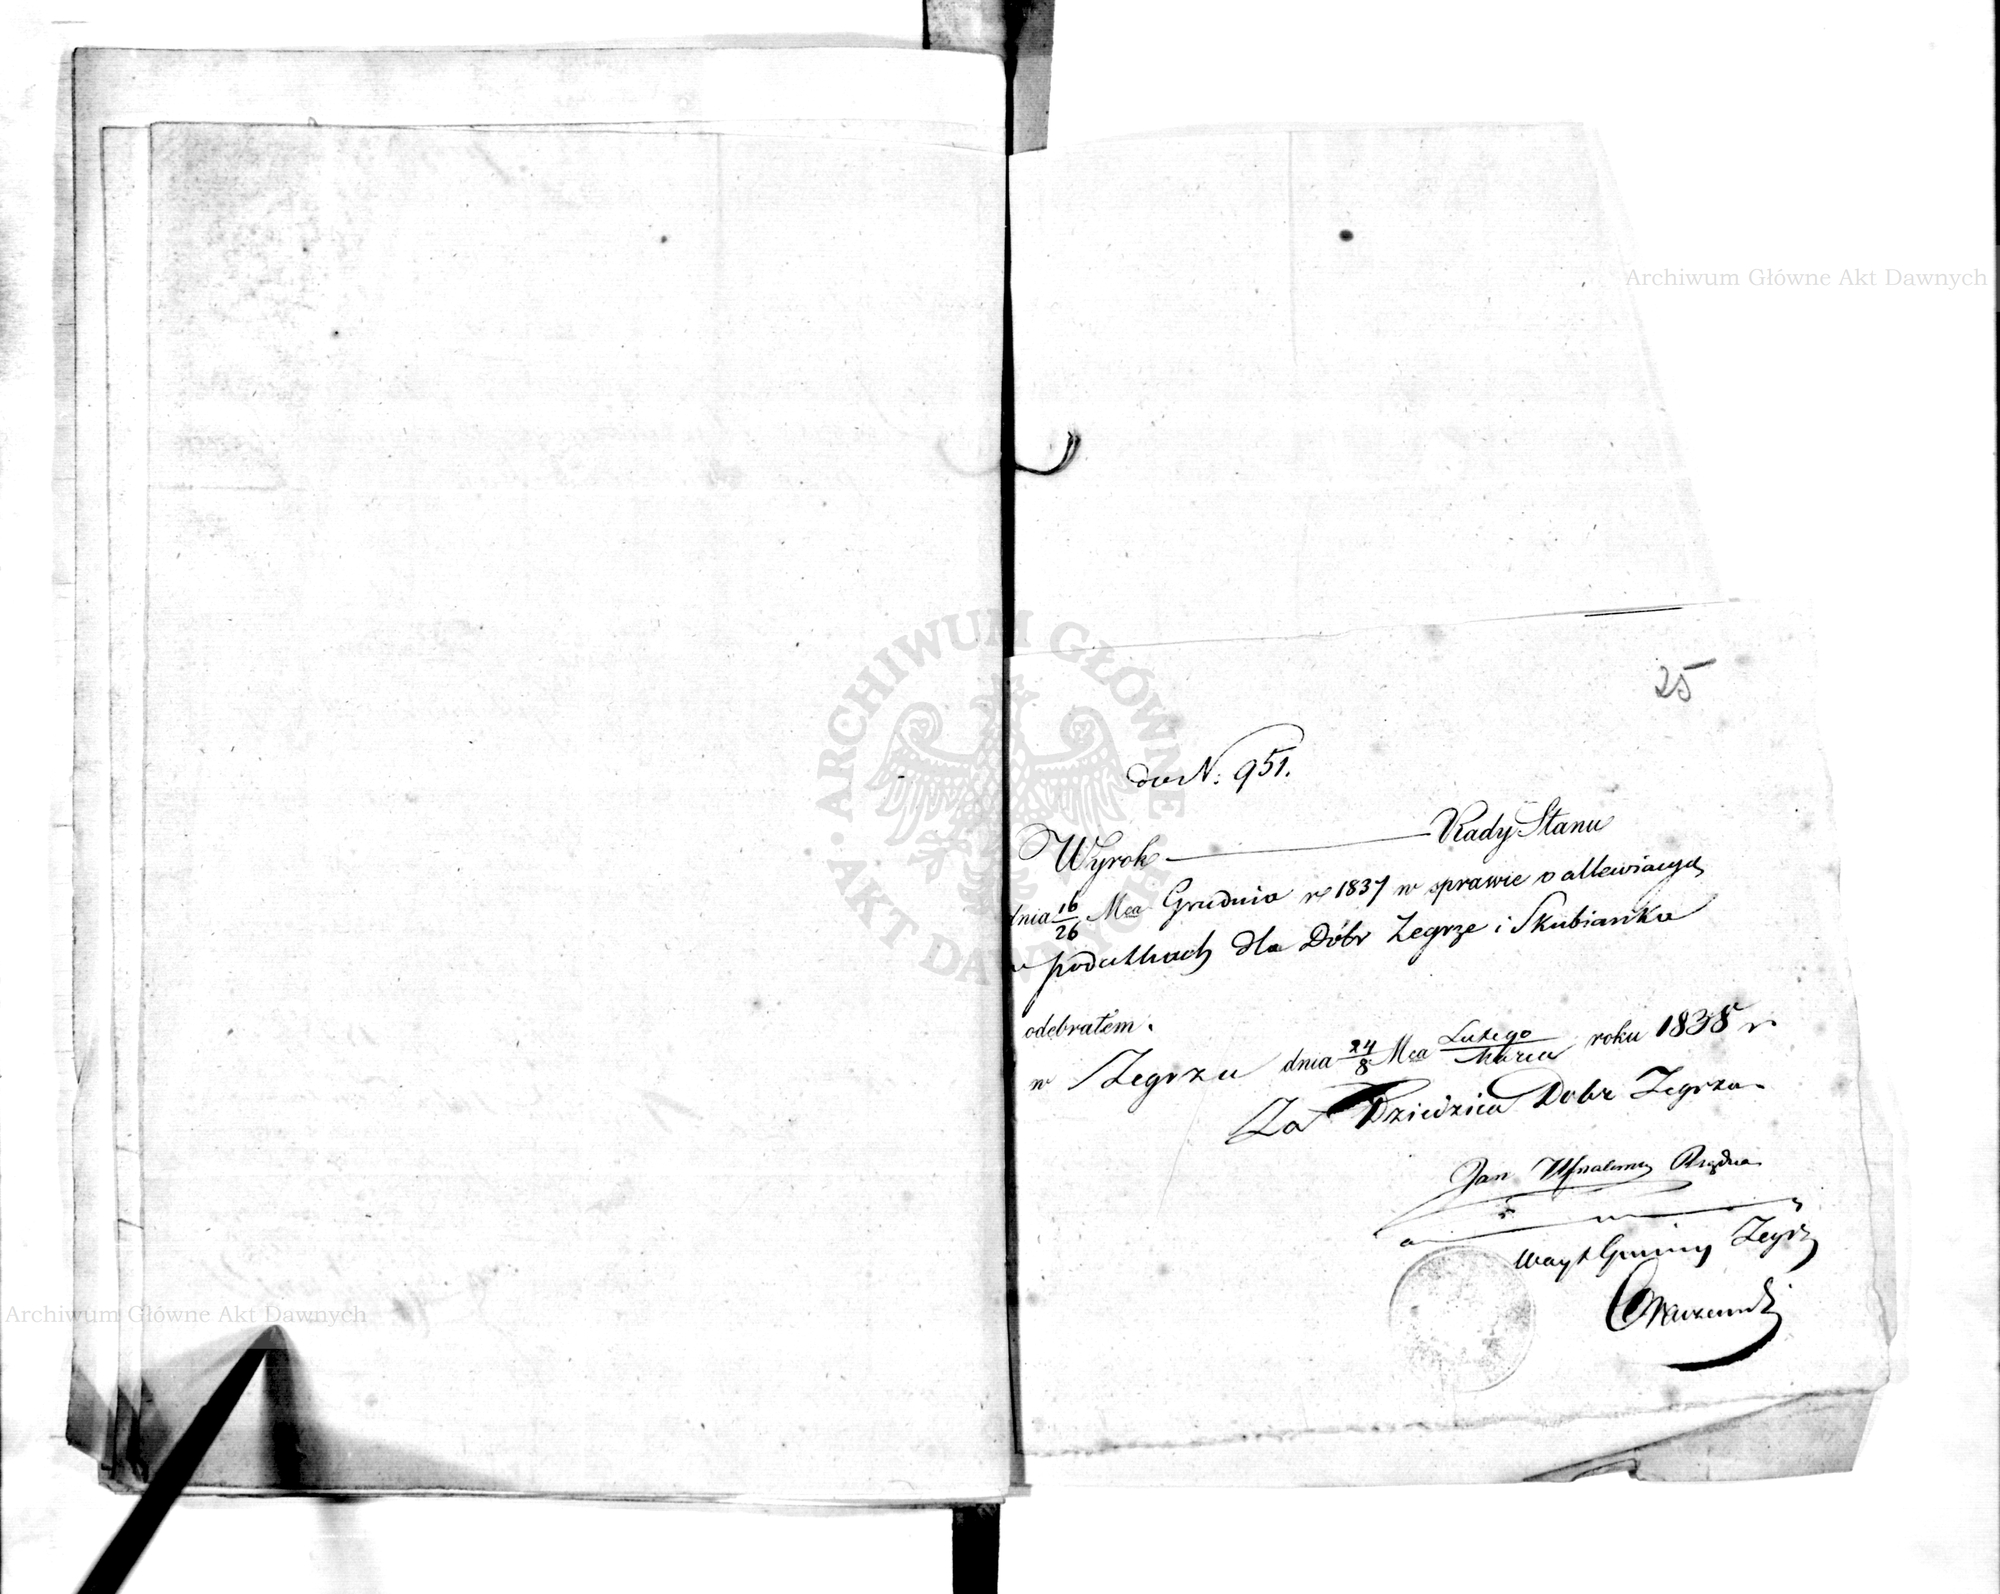 Archiwum Główne Akt Dawnych
25
do N: 951.
Wyrok Rady Stanu
dnia 16/26 Mca Grudnia r 1837 w sprawie o allewiacyą
w podatkach dla Dóbr Zegrze i Skubianka
odebrałem.
w Zegrzu dnia 24/8 Mca Lutego/Marca roku 1838 r
Za Dziedzica Dobr Zegrza
Jan Rządca
Wóyt Gminy Zegrz
ARCHIWUM GŁÓWNE AKT DAWNYCH
Archiwum Główne Akt Dawnych